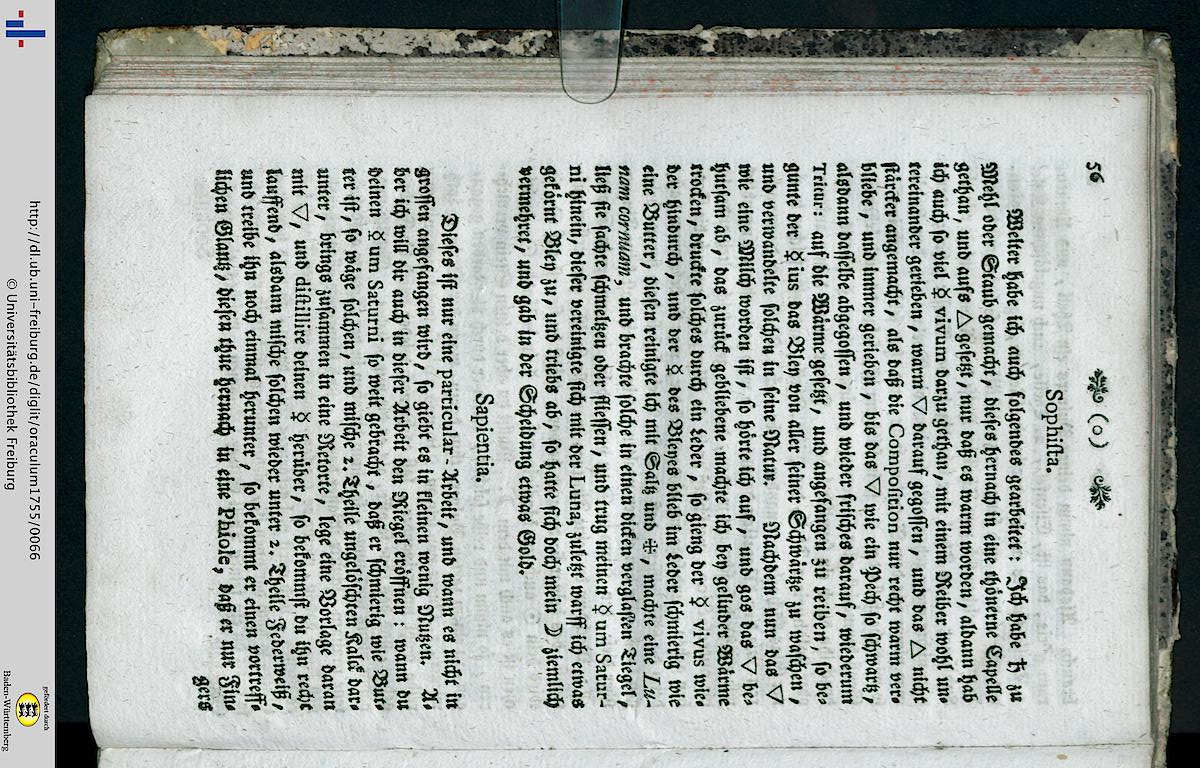 56 (o)
Sophista.
Weiter habe ich auch folgendes gearbeitet: Ich habe ♄ zu
Mehl oder Staub gemacht, dieses hernach in eine thönerne Capelle
gethan, und aufs △ gesetzt, nur daß es warm worden, aldann hab
ich auch so viel ☿ vivum darzu gethan, mit einem Reiber wohl un-
tereinander gerieben, warm ▽ darauf gegossen, und das △ nicht
stärcker angemacht, als daß die Composition nur recht warm ver-
bliebe, und immer gerieben, bis das ▽ wie ein Pech so schwartz,
alsdann dasselbe abgegossen, und wieder frisches darauf, wiederum
Tritur: auf die Wärme gesetzt, und angefangen zu reiben, so be-
gunte der ☿ius das Bley von aller seiner Schwärtze zu waschen,
und verwandelte solchen in seine Natur. Nachdem nun das ▽
wie eine Milch worden ist, so hörte ich auf, und gos das ▽ be-
hutsam ab, das zurück gebliebene machte ich bey gelinder Wärme
trocken, druckte solches durch ein Leder, so gieng der ☿ vivus wie-
der hindurch, und der ☿ des Bleyes blieb im Leder schmierig wie
eine Butter, diesen reinigte ich mit Saltz und ⁜, machte eine Lu-
nam cornuam, und brachte solche in einen dicken verglaßten Tiegel,
ließ sie sachte schmeltzen oder fliessen, und trug meinen ☿um Satur-
ni hinein, dieser vereinigte sich mit der Luna, zuletzt warff ich etwas
gekörnt Bley zu, und triebs ab, so hatte sich doch mein ☽ ziemlich
vermehret, und gab in der Scheidung etwas Gold.
Sapientia.
Dieses ist nur eine particular-Arbeit, und wann es nicht in
grossen angefangen wird, so giebt es in kleinen wenig Nutzen. A-
ber ich will dir auch in dieser Arbeit den Riegel eröffnen: wann du
deinen ☿um Saturni so weit gebracht, daß er schmierig wie But-
ter ist, so wäge solchen, und mische 2. Theile ungelöschten Kalck dar-
unter, brings zusammen in eine Retorte, lege eine Vorlage daran
mit ▽, und distillire deinen ☿ herüber, so bekommst du ihn recht
lauffend, alsdann mische solchen wieder unter 2. Theile Federweiß,
und treibe ihn noch einmal herunter, so bekommt er einen vortreff-
lichen Glantz, diesen thue hernach in eine Phiole, daß er nur Fin-
gers
http://dl.ub.uni-freiburg.de/diglit/oraculum1755/0066
© Universitätsbibliothek Freiburg
gefördert durch
Baden-Württemberg